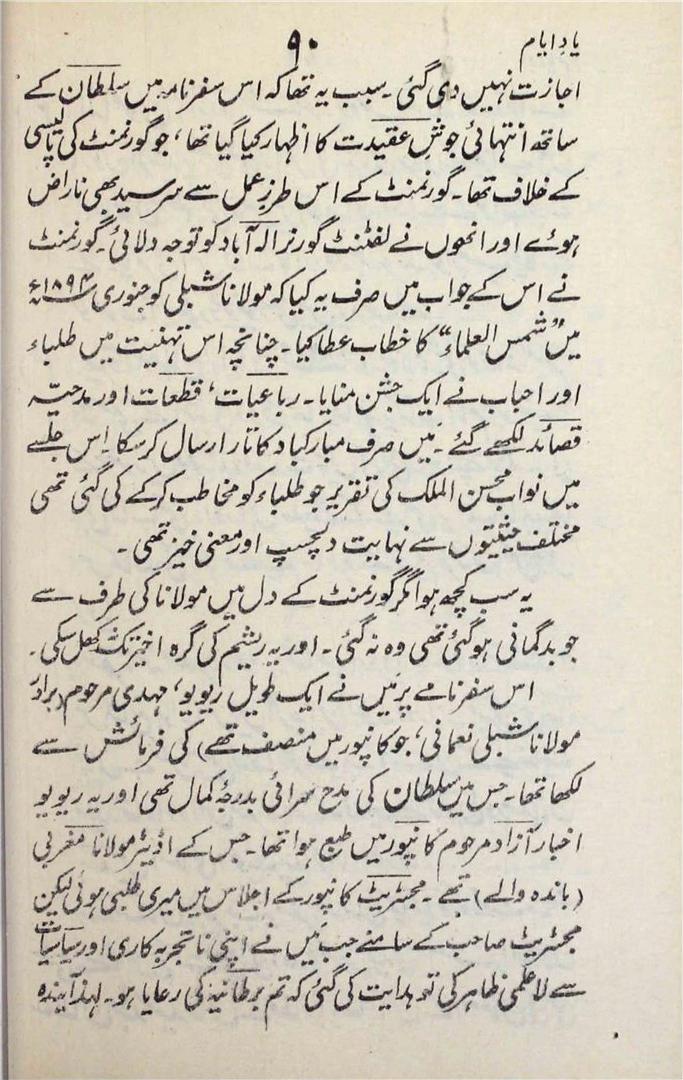 یادِ ایام ۹۰
اجازت نہیں دی گئی۔ سبب یہ تھا کہ اس سفر نامہ میں سلطان کے
ساتھ انتہائی جوشِ عقیدت کا اظہار کیا گیا تھا، جو گورنمنٹ کی پالیسی
کے خلاف تھا۔ گورنمنٹ کے اس طرزِ عمل سے سرسید بھی ناراض
ہوئے اور انھوں نے لفٹنٹ گورنر الہ آباد کو توجہ دلائی۔ گورنمنٹ
نے اس کے جواب میں صرف یہ کیا کہ مولانا شبلی کو جنوری ۱۸۹۴ء
میں "شمس العلماء" کا خطاب عطا کیا۔ چنانچہ اس تہنیت میں طلباء
اور احباب نے ایک جشن منایا۔ رباعیات، قطعات اور مدحیہ
قصائد لکھے گئے۔ میں صرف مبارکباد کا تار ارسال کر سکا۔ اس جلسے
میں نواب محسن الملک کی تقریر جو طلباء کو مخاطب کرکے کی گئی تھی
مختلف حیثیتوں سے نہایت دلچسپ اور معنی خیز تھی۔
یہ سب کچھ ہوا مگر گورنمنٹ کے دل میں مولانا کی طرف سے
جو بدگمانی ہوگئی تھی وہ نہ گئی۔ اور یہ ریشم کی گرہ اخیر تک نہ کھل سکی۔
اس سفر نامے پر میں نے ایک طویل ریویو، مہدی مرحوم (برادر
مولانا شبلی نعمانی، جو کانپور میں منصف تھے) کی فرمائش سے
لکھا تھا۔ جس میں سلطان کی مدح سرائی بدرجۂ کمال تھی اور یہ ریویو
اخبار آزاد مرحوم کانپور میں طبع ہوا تھا۔ جس کے اڈیٹر مولانا مغربی
(باندہ والے) تھے۔ مجسٹریٹ کانپور کے اجلاس میں میری طلبی ہوئی لیکن
مجسٹریٹ صاحب کے سامنے جب میں نے اپنی ناتجربہ کاری اور سیاسیات
سے لاعلمی ظاہر کی تو ہدایت کی گئی کہ تم برطانیہ کی رعایا ہو۔ لہذا آیندہ